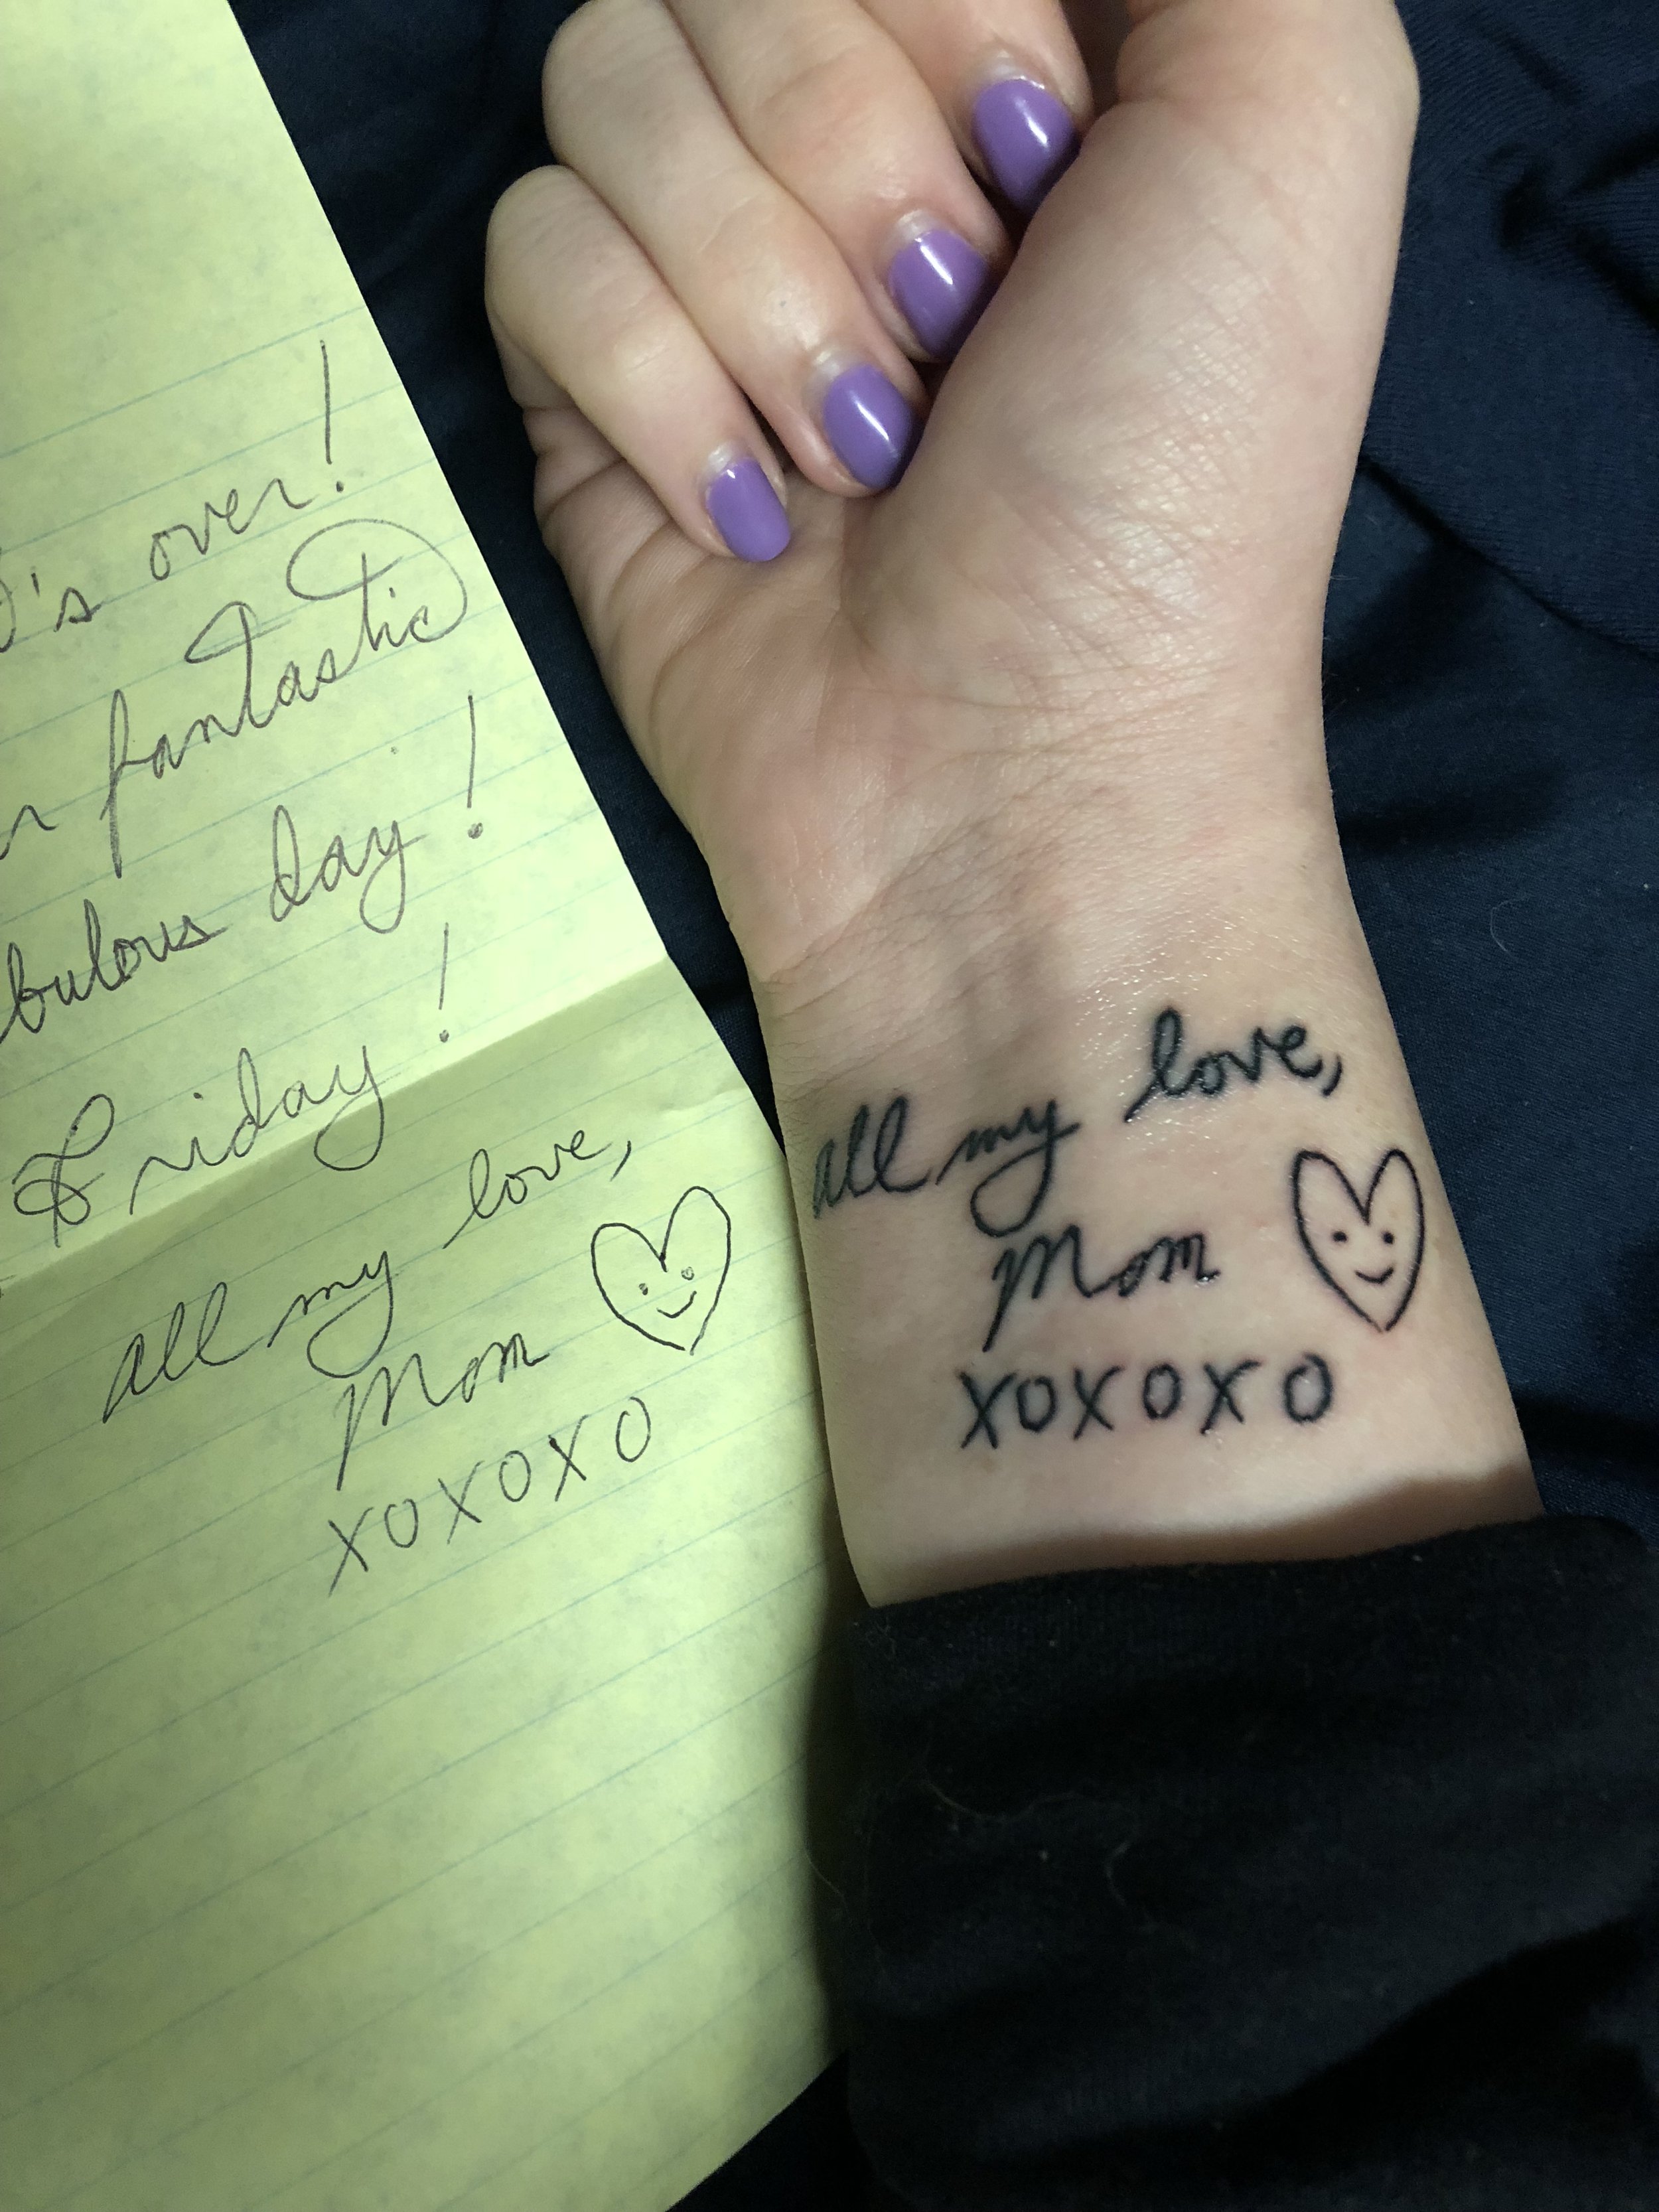 's over!
fantastic
bulous day!
Friday!
all my love,
Mom
xoxoxo
all my love,
Mom
xoxoxo